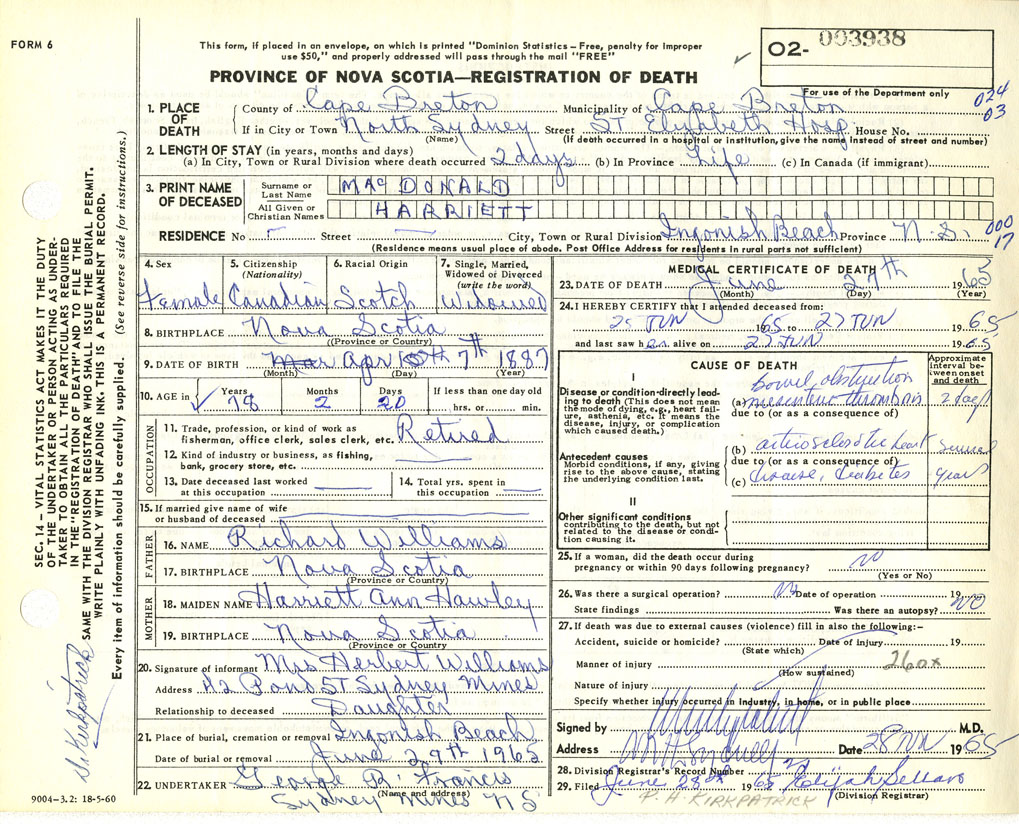 FORM 6
This form, if placed in an envelope, on which is printed "Dominion Statistics – Free, penalty for improper
use $50," and properly addressed will pass through the mail "FREE"
PROVINCE OF NOVA SCOTIA—REGISTRATION OF DEATH
O2- 003938
For use of the Department only
024
03
1. PLACE OF DEATH
County of Cape Breton Municipality of Cape Breton
If in City or Town North Sydney Street ST Elizabeth Hosp House No.
(Name) (If death occurred in a hospital or institution, give the name instead of street and number)
2. LENGTH OF STAY (in years, months and days)
(a) In City, Town or Rural Division where death occurred 2 days (b) In Province Life (c) In Canada (if immigrant)
3. PRINT NAME OF DECEASED
Surname or Last Name MACDONALD
All Given or Christian Names HARRIETT
RESIDENCE No Street City, Town or Rural Division Ingonish Beach Province N.S.
000
17
(Residence means usual place of abode. Post Office Address for residents in rural parts not sufficient)
4. Sex Female
5. Citizenship (Nationality) Canadian
6. Racial Origin Scotch
7. Single, Married, Widowed or Divorced (write the word) Widowed
8. BIRTHPLACE Nova Scotia
(Province or Country)
9. DATE OF BIRTH Mar Apr 7th 1887
(Month) (Day) (Year)
10. AGE in Years 78 Months 2 Days 20 If less than one day old hrs. or min.
OCCUPATION
11. Trade, profession, or kind of work as fisherman, office clerk, sales clerk, etc. Retired
12. Kind of industry or business, as fishing, bank, grocery store, etc.
13. Date deceased last worked at this occupation
14. Total yrs. spent in this occupation
15. If married give name of wife or husband of deceased
FATHER
16. NAME Richard Williams
17. BIRTHPLACE Nova Scotia
(Province or Country)
MOTHER
18. MAIDEN NAME Harriett Ann Hawley
19. BIRTHPLACE Nova Scotia
(Province or Country)
20. Signature of informant Mrs Herbert Williams
Address 42 Pond ST Sydney Mines
Relationship to deceased Daughter
21. Place of burial, cremation or removal Ingonish Beach
Date of burial or removal June 29th 1965
22. UNDERTAKER George R. Francis
(Name and address)
Sydney Mines N S
9004–3.2: 18-5-60
MEDICAL CERTIFICATE OF DEATH
23. DATE OF DEATH June 27th 1965
(Month) (Day) (Year)
24. I HEREBY CERTIFY that I attended deceased from:
25 JUN 1965 to 27 JUN 1965
and last saw her alive on 27 JUN 1965
CAUSE OF DEATH
Approximate interval between onset and death
I
Disease or condition directly leading to death (This does not mean the mode of dying, e.g., heart failure, asthenia, etc. It means the disease, injury, or complication which caused death.)
bowel obstruction
(a) mesenteric thrombosis 2 days
due to (or as a consequence of)
Antecedent causes
Morbid conditions, if any, giving rise to the above cause, stating the underlying condition last.
(b) arteriosclerotic heart several
due to (or as a consequence of)
(c) disease, diabetes years
II
Other significant conditions
contributing to the death, but not related to the disease or condition causing it.
25. If a woman, did the death occur during pregnancy or within 90 days following pregnancy? NO
(Yes or No)
26. Was there a surgical operation? No Date of operation 19
State findings Was there an autopsy? NO
27. If death was due to external causes (violence) fill in also the following:–
Accident, suicide or homicide? Date of injury 19
(State which)
Manner of injury 260x
(How sustained)
Nature of injury
Specify whether injury occurred in Industry, in home, or in public place
Signed by M.D.
Address Date 28 JUN 1965
28. Division Registrar's Record Number
29. Filed June 28th 1965 Elijah Sellars
(Division Registrar)
R. H. KIRKPATRICK
SEC. 14 – VITAL STATISTICS ACT MAKES IT THE DUTY
OF THE UNDERTAKER OR PERSON ACTING AS UNDER-
TAKER TO OBTAIN ALL THE PARTICULARS REQUIRED
IN THE "REGISTRATION OF DEATH" AND TO FILE THE
SAME WITH THE DIVISION REGISTRAR WHO SHALL ISSUE THE BURIAL PERMIT.
WRITE PLAINLY WITH UNFADING INK. THIS IS A PERMANENT RECORD.
Every item of information should be carefully supplied. (See reverse side for instructions.)
Dr. Kirkpatrick